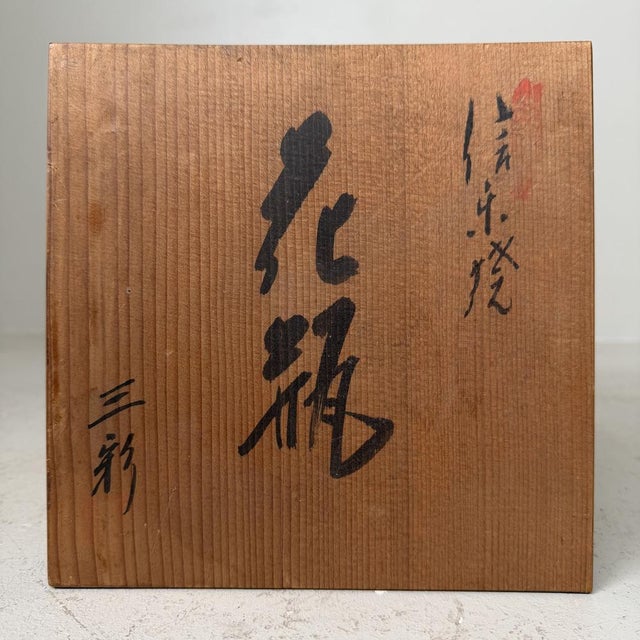 信楽焼
花瓶
三彩